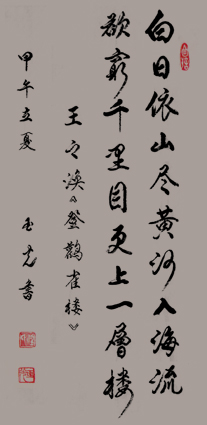 白日依山尽黄河入海流
欲穷千里目更上一层楼
王之涣《登鹳雀楼》
甲午立夏